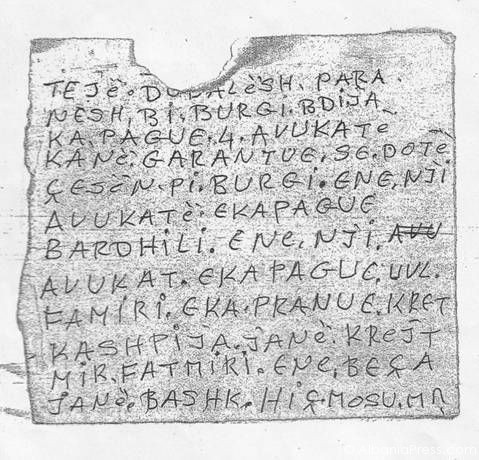 TEJÈ. DUDALÈSH. PARA.
NESH, BI. BURGI. BDIJA
KA. PAGUE. 4. AVUKATE
KANÈ. GARANTUE, SE. DOTË
ÇESÈN. PI. BURGI. ENE, NJI
AVUKATÈ. EKAPAGUE
BARDHILI. ENE, NJI, AVU
AVUKAT. EKA PAGUE. UVL.
FAMIRI. EKA. PRANUE. KRET
KASHPIJA. JANÈ. KREJT
MIR. FATMIRI. ENE, BEÇA
JANÈ. BASHK. HIÇ. MOSU. M